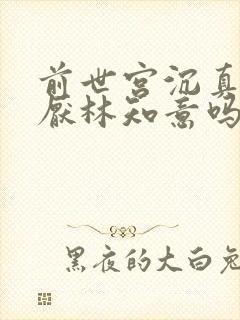 前世宫沉真
厌林知意吗
黑夜的大白兔